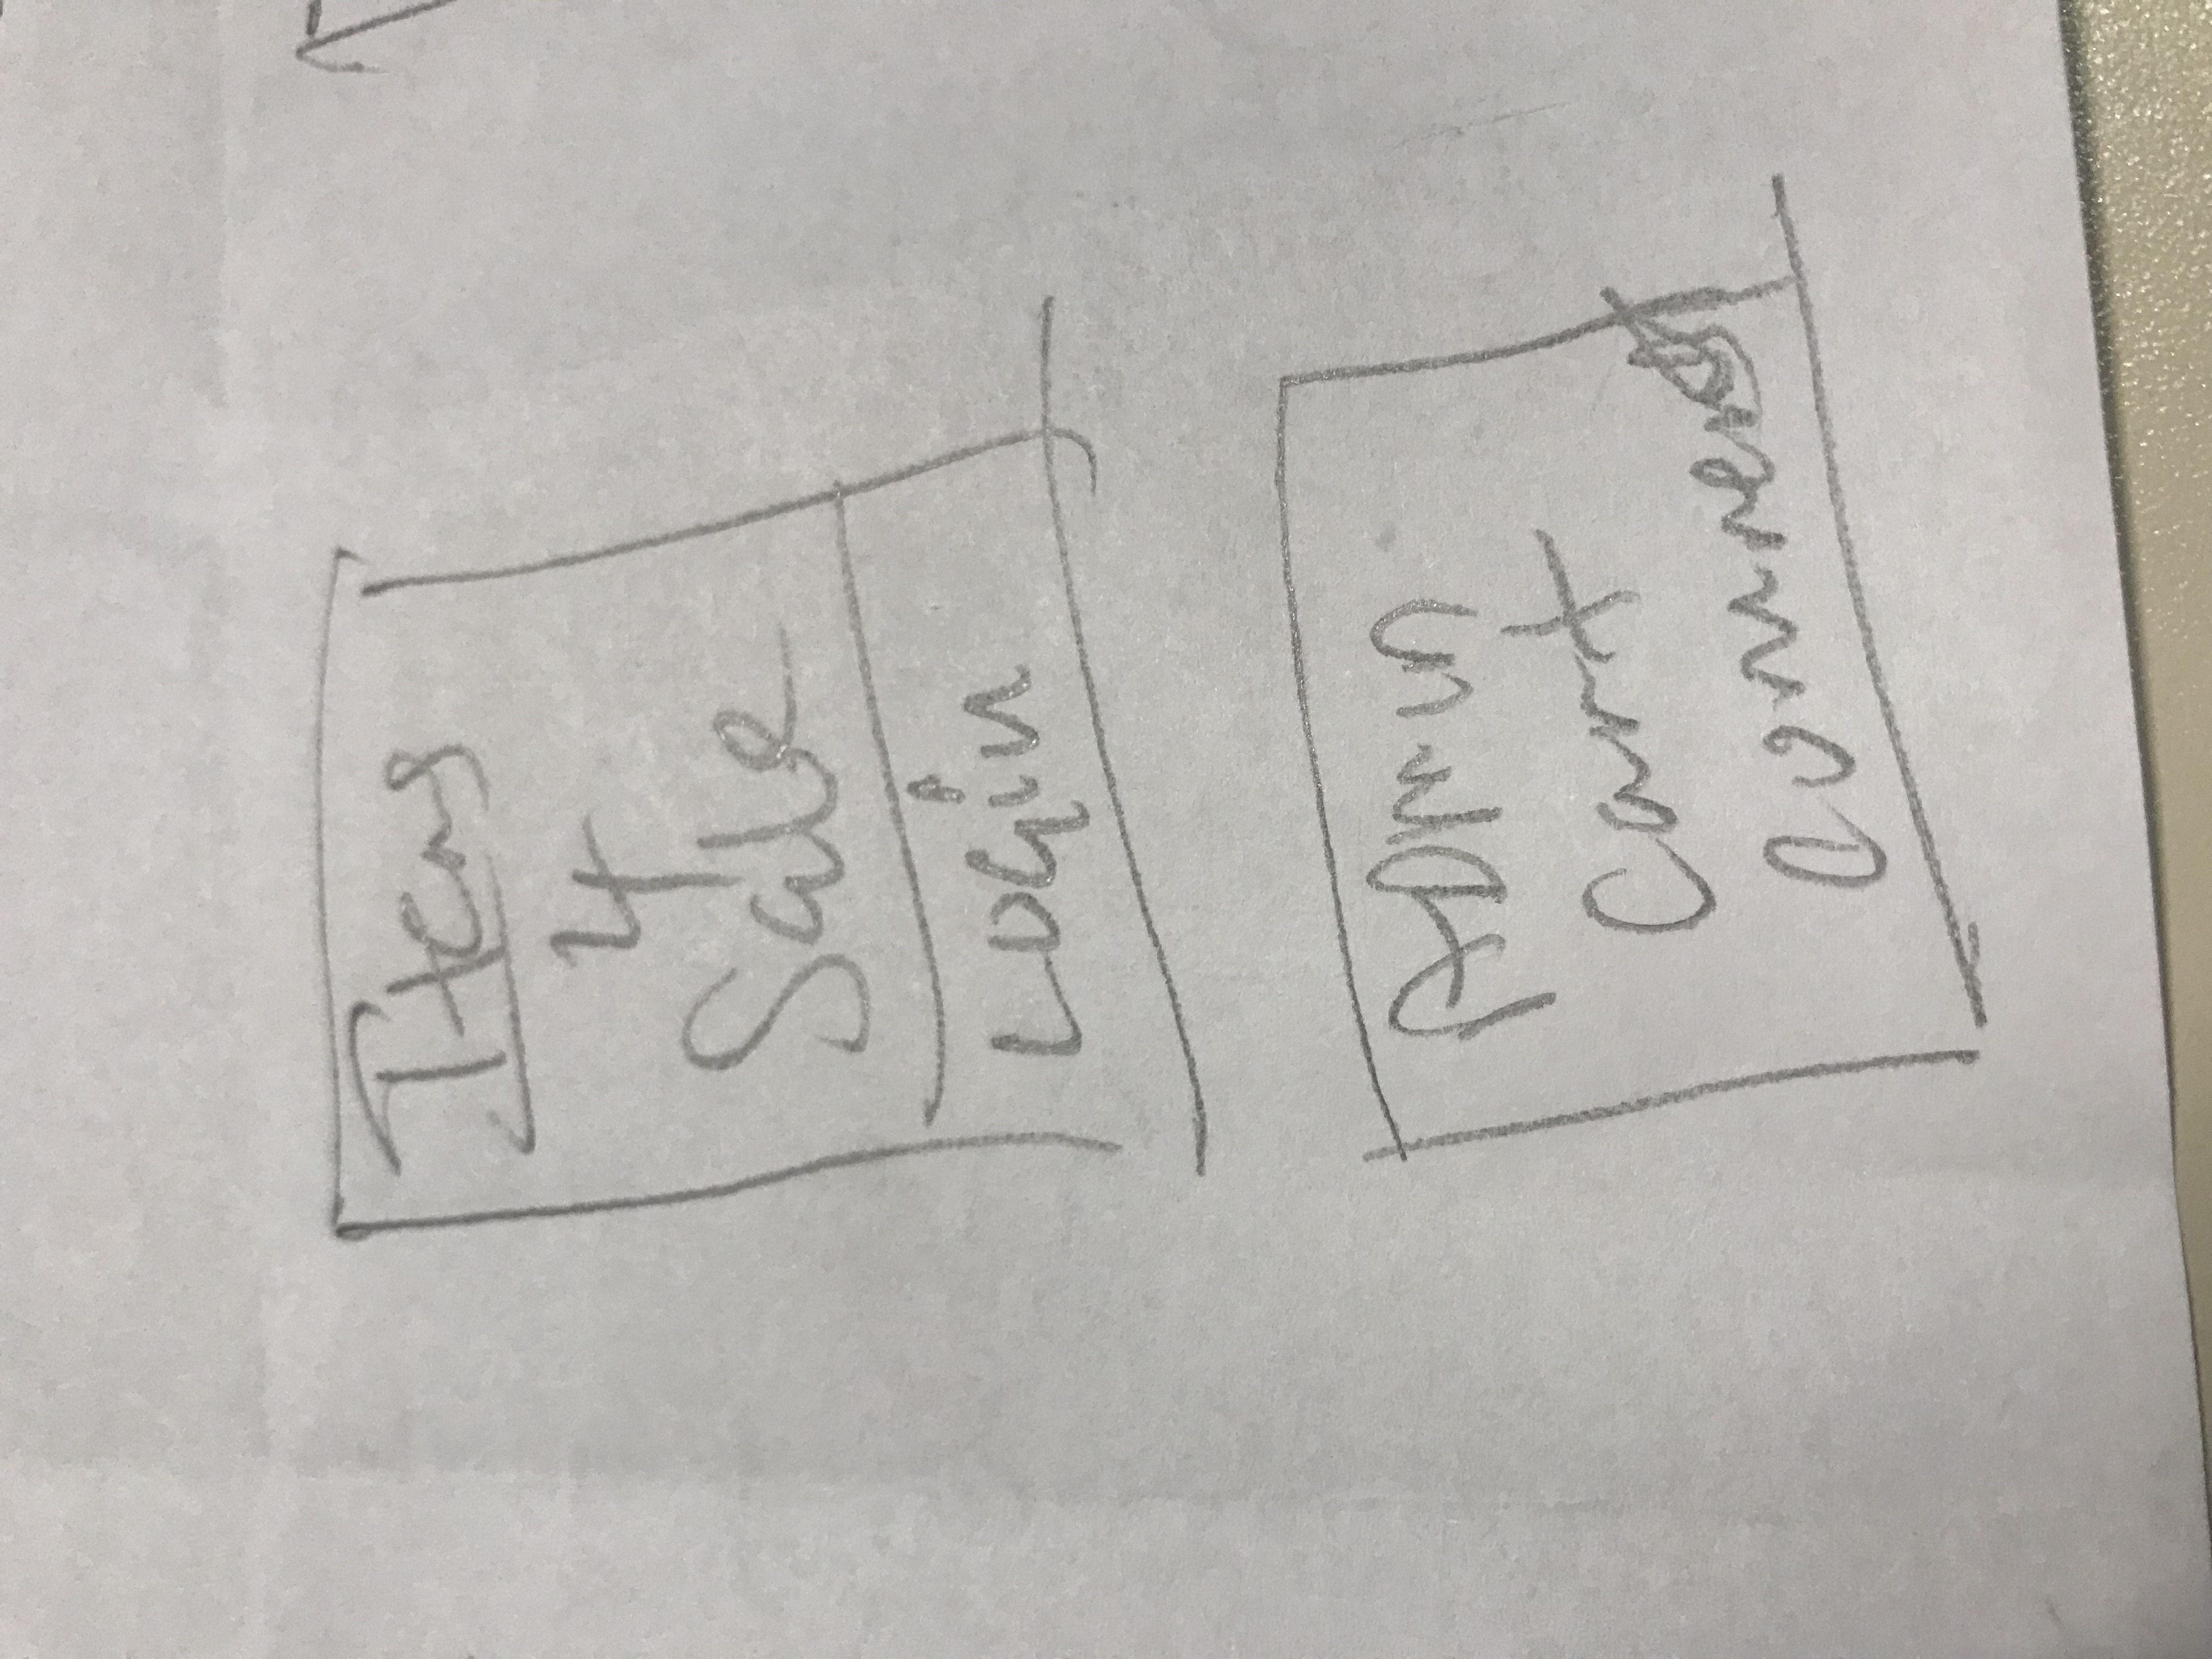 Items
4
Sale
Login
ADmin
Cart
Comments